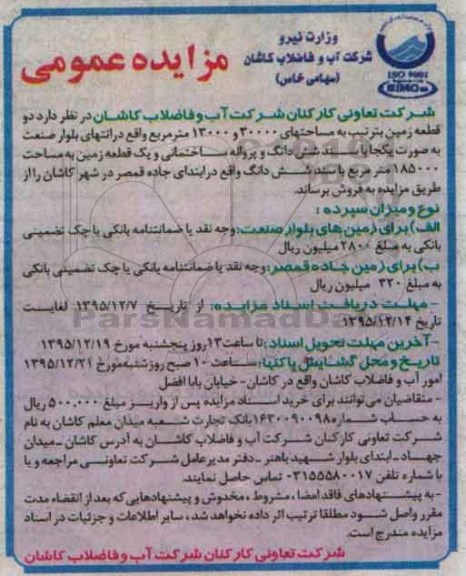 وزارت نیرو
شرکت آب و فاضلاب کاشان
(سهامی خاص)
ISO 9001
مزایده عمومی
شرکت تعاونی کارکنان شرکت آب و فاضلاب کاشان در نظر دارد دو
قطعه زمین بترتیب به مساحتهای ۳۰۰۰۰ و ۱۳۰۰۰ مترمربع واقع درانتهای بلوار صنعت
به صورت یکجا با سند شش دانگ و پروانه ساختمانی و یک قطعه زمین به مساحت
۱۸۵۰۰۰ متر مربع با سند شش دانگ واقع درابتدای جاده قمصر در شهر کاشان را از
طریق مزایده به فروش برساند.
نوع و میزان سپرده :
الف) برای زمین های بلوار صنعت: وجه نقد یا ضمانتنامه بانکی یا چک تضمینی
بانکی به مبلغ ۲۸۰۰ میلیون ریال
ب) برای زمین جاده قمصر: وجه نقد یا ضمانتنامه بانکی یا چک تضمینی بانکی
به مبلغ ۳۲۰ میلیون ریال
- مهلت دریافت اسناد مزایده: از تاریخ ۱۳۹۵/۱۲/۷ لغایت
تاریخ ۱۳۹۵/۱۲/۱۴
- آخرین مهلت تحویل اسناد: تا ساعت ۱۳ روز پنجشنبه مورخ ۱۳۹۵/۱۲/۱۹
تاریخ و محل گشایش پاکتها: ساعت ۱۰ صبح روز شنبه مورخ ۱۳۹۵/۱۲/۲۱
امور آب و فاضلاب کاشان واقع در کاشان - خیابان بابا افضل
- متقاضیان می توانند برای خرید اسناد مزایده پس از واریز مبلغ ۵۰۰,۰۰۰ ریال
به حساب شماره ۱۶۳۰۰۹۰۰۹۸ بانک تجارت شعبه میدان معلم کاشان به نام
شرکت تعاونی کارکنان شرکت آب و فاضلاب کاشان به آدرس کاشان - میدان
جهاد - ابتدای بلوار شهید باهنر - دفتر مدیرعامل شرکت تعاونی مراجعه و یا
با شماره تلفن ۰۳۱۵۵۵۸۰۰۱۷ تماس حاصل نمایند.
- به پیشنهادهای فاقد امضا، مشروط، مخدوش و پیشنهادهایی که بعد از انقضاء مدت
مقرر واصل شود مطلقا ترتیب اثر داده نخواهد شد، سایر اطلاعات و جزئیات در اسناد
مزایده مندرج است.
شرکت تعاونی کارکنان شرکت آب و فاضلاب کاشان
ParsNamadData